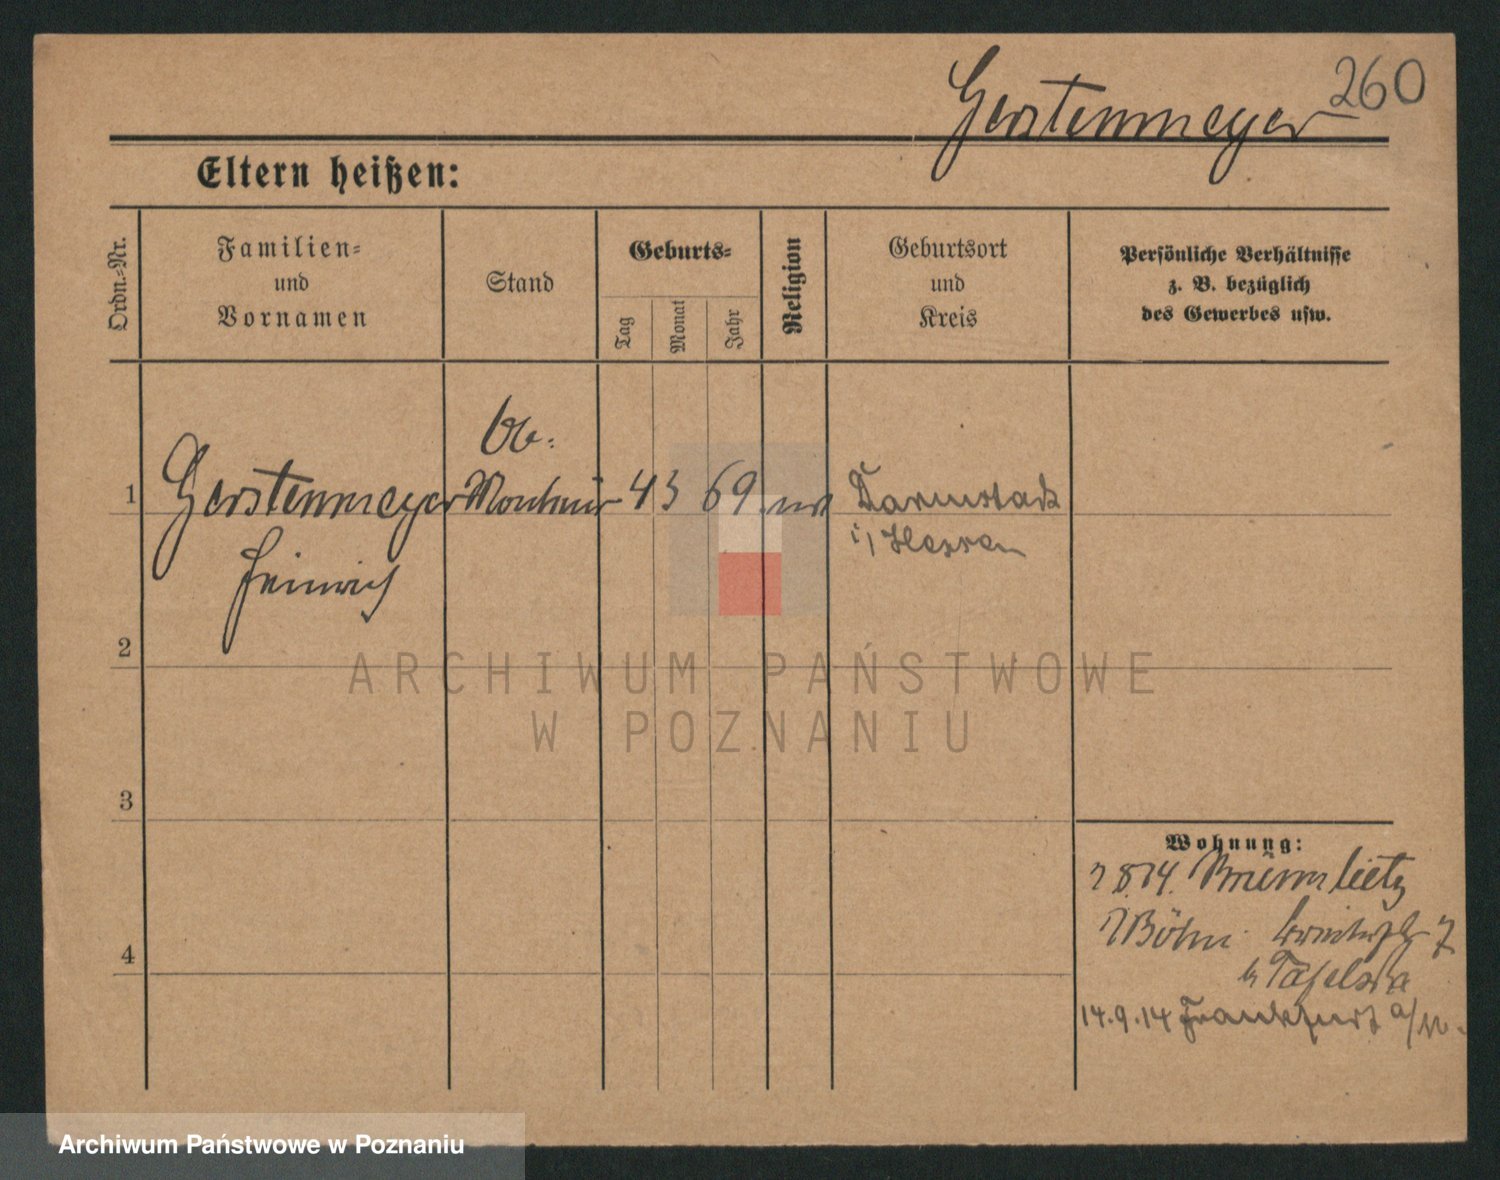 260
Gerstenmeyer
Eltern heißen:
Ordn.-Nr.
Familien-
und
Vornamen
Stand
Geburts-
Tag
Monat
Jahr
Religion
Geburtsort
und
Kreis
Persönliche Verhältnisse
z. B. bezüglich
des Gewerbes usw.
1
Gerstenmeyer
Heinrich
Ob.
Monteur
4 3 69
Darmstadt
i/ Hessen
2
ARCHIWUM PAŃSTWOWE
W POZNANIU
3
4
Wohnung:
7 8 14.
Böhm
b Tafelski
14.9.14 Frankfurt a/M.
Archiwum Państwowe w Poznaniu